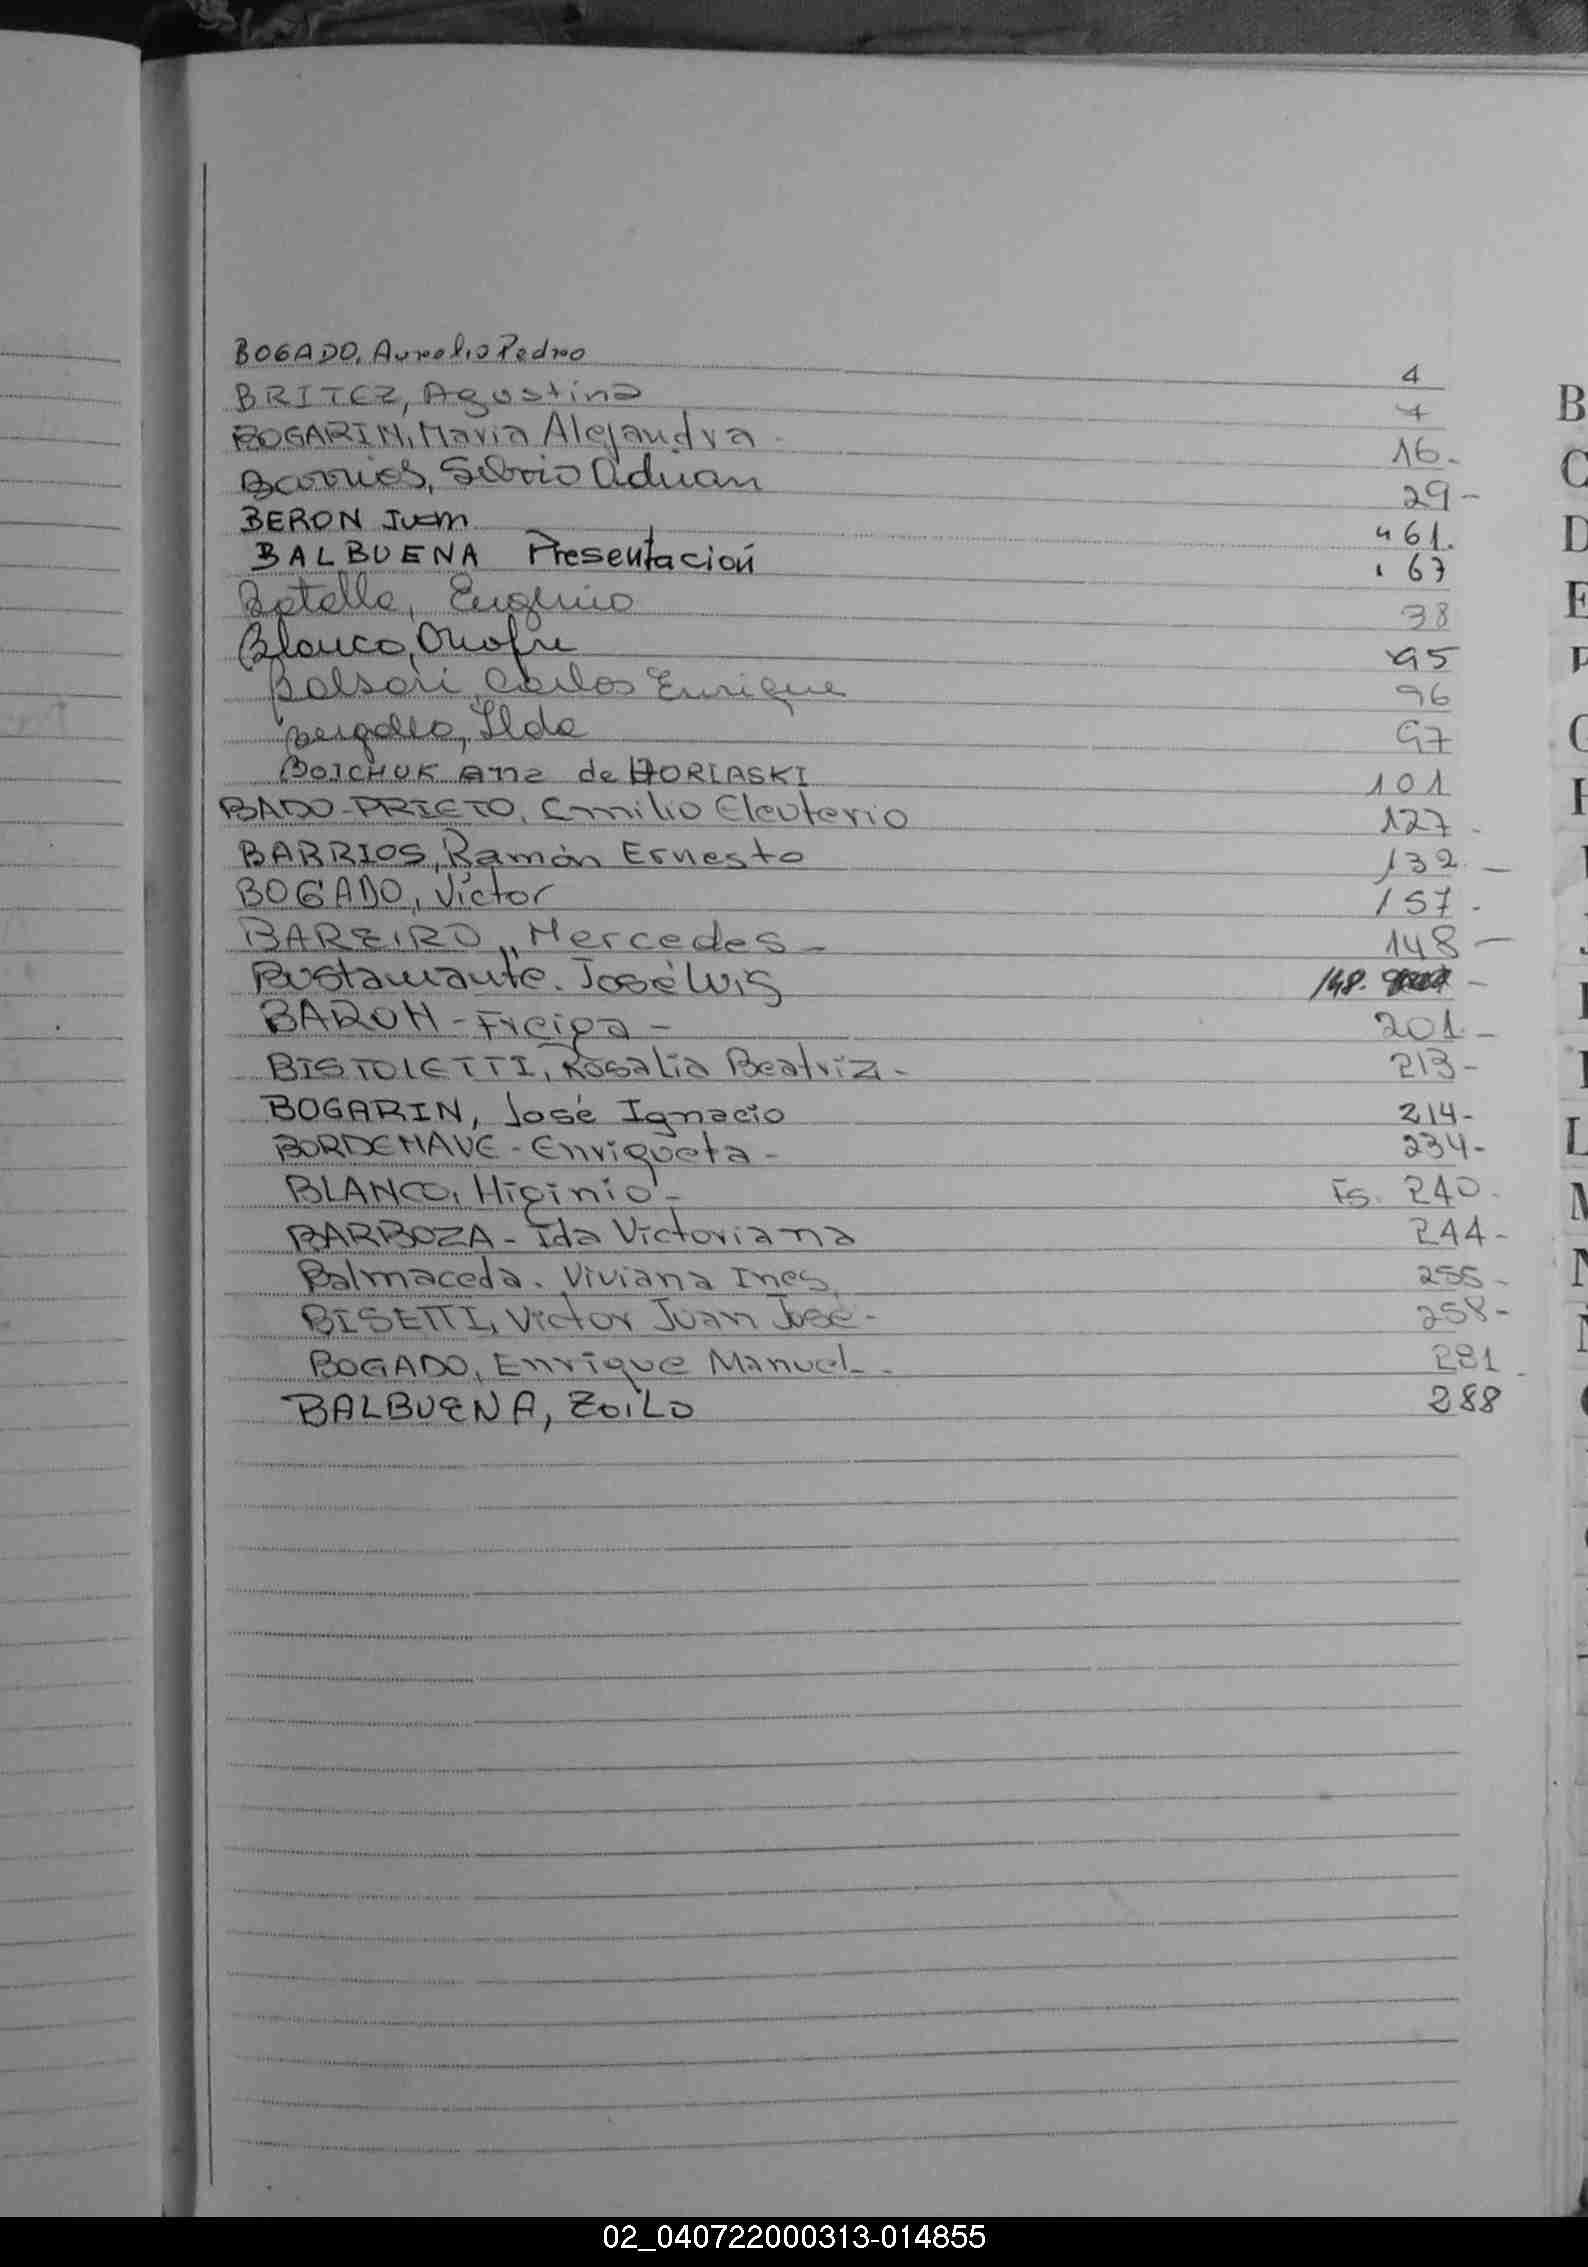 BOGADO, Aurelio Pedro 4
BRITEZ, Agustina 7
BOGARIN, Maria Alejandra. 16.
Barrios, Silvio Adrian 29-
BERON Juan " 61.
BALBUENA Presentación 67
Batalla, Eugenio 38
Blanco, Onofre 95
Balsari, Carlos Enrique 96
Bergallo, Ilda 97
BOICHUK Ana de HORLASKI 101
BADO-PRIETO, Emilio Eleuterio 127.
BARRIOS, Ramón Ernesto 132-
BOGADO, Victor 157.
BAREIRO, Mercedes- 148-
Bustamante. José Luis 148. -
BARON - Freiga - 201-
BISTOLETTI, Rosalia Beatriz- 213-
BOGARIN, José Ignacio 214-
BORDEHAVE - Enriqueta - 234-
BLANCO, Higinio - Fs. 240.
BARBOZA - Ida Victoriana 244-
Balmaceda. Viviana Ines, 255-
BISETTI, Victor Juan José- 258-
BOGADO, Enrique Manuel- 281
BALBUENA, Zoilo 288
B
C
D
E
L
M
N
02_040722000313-014855